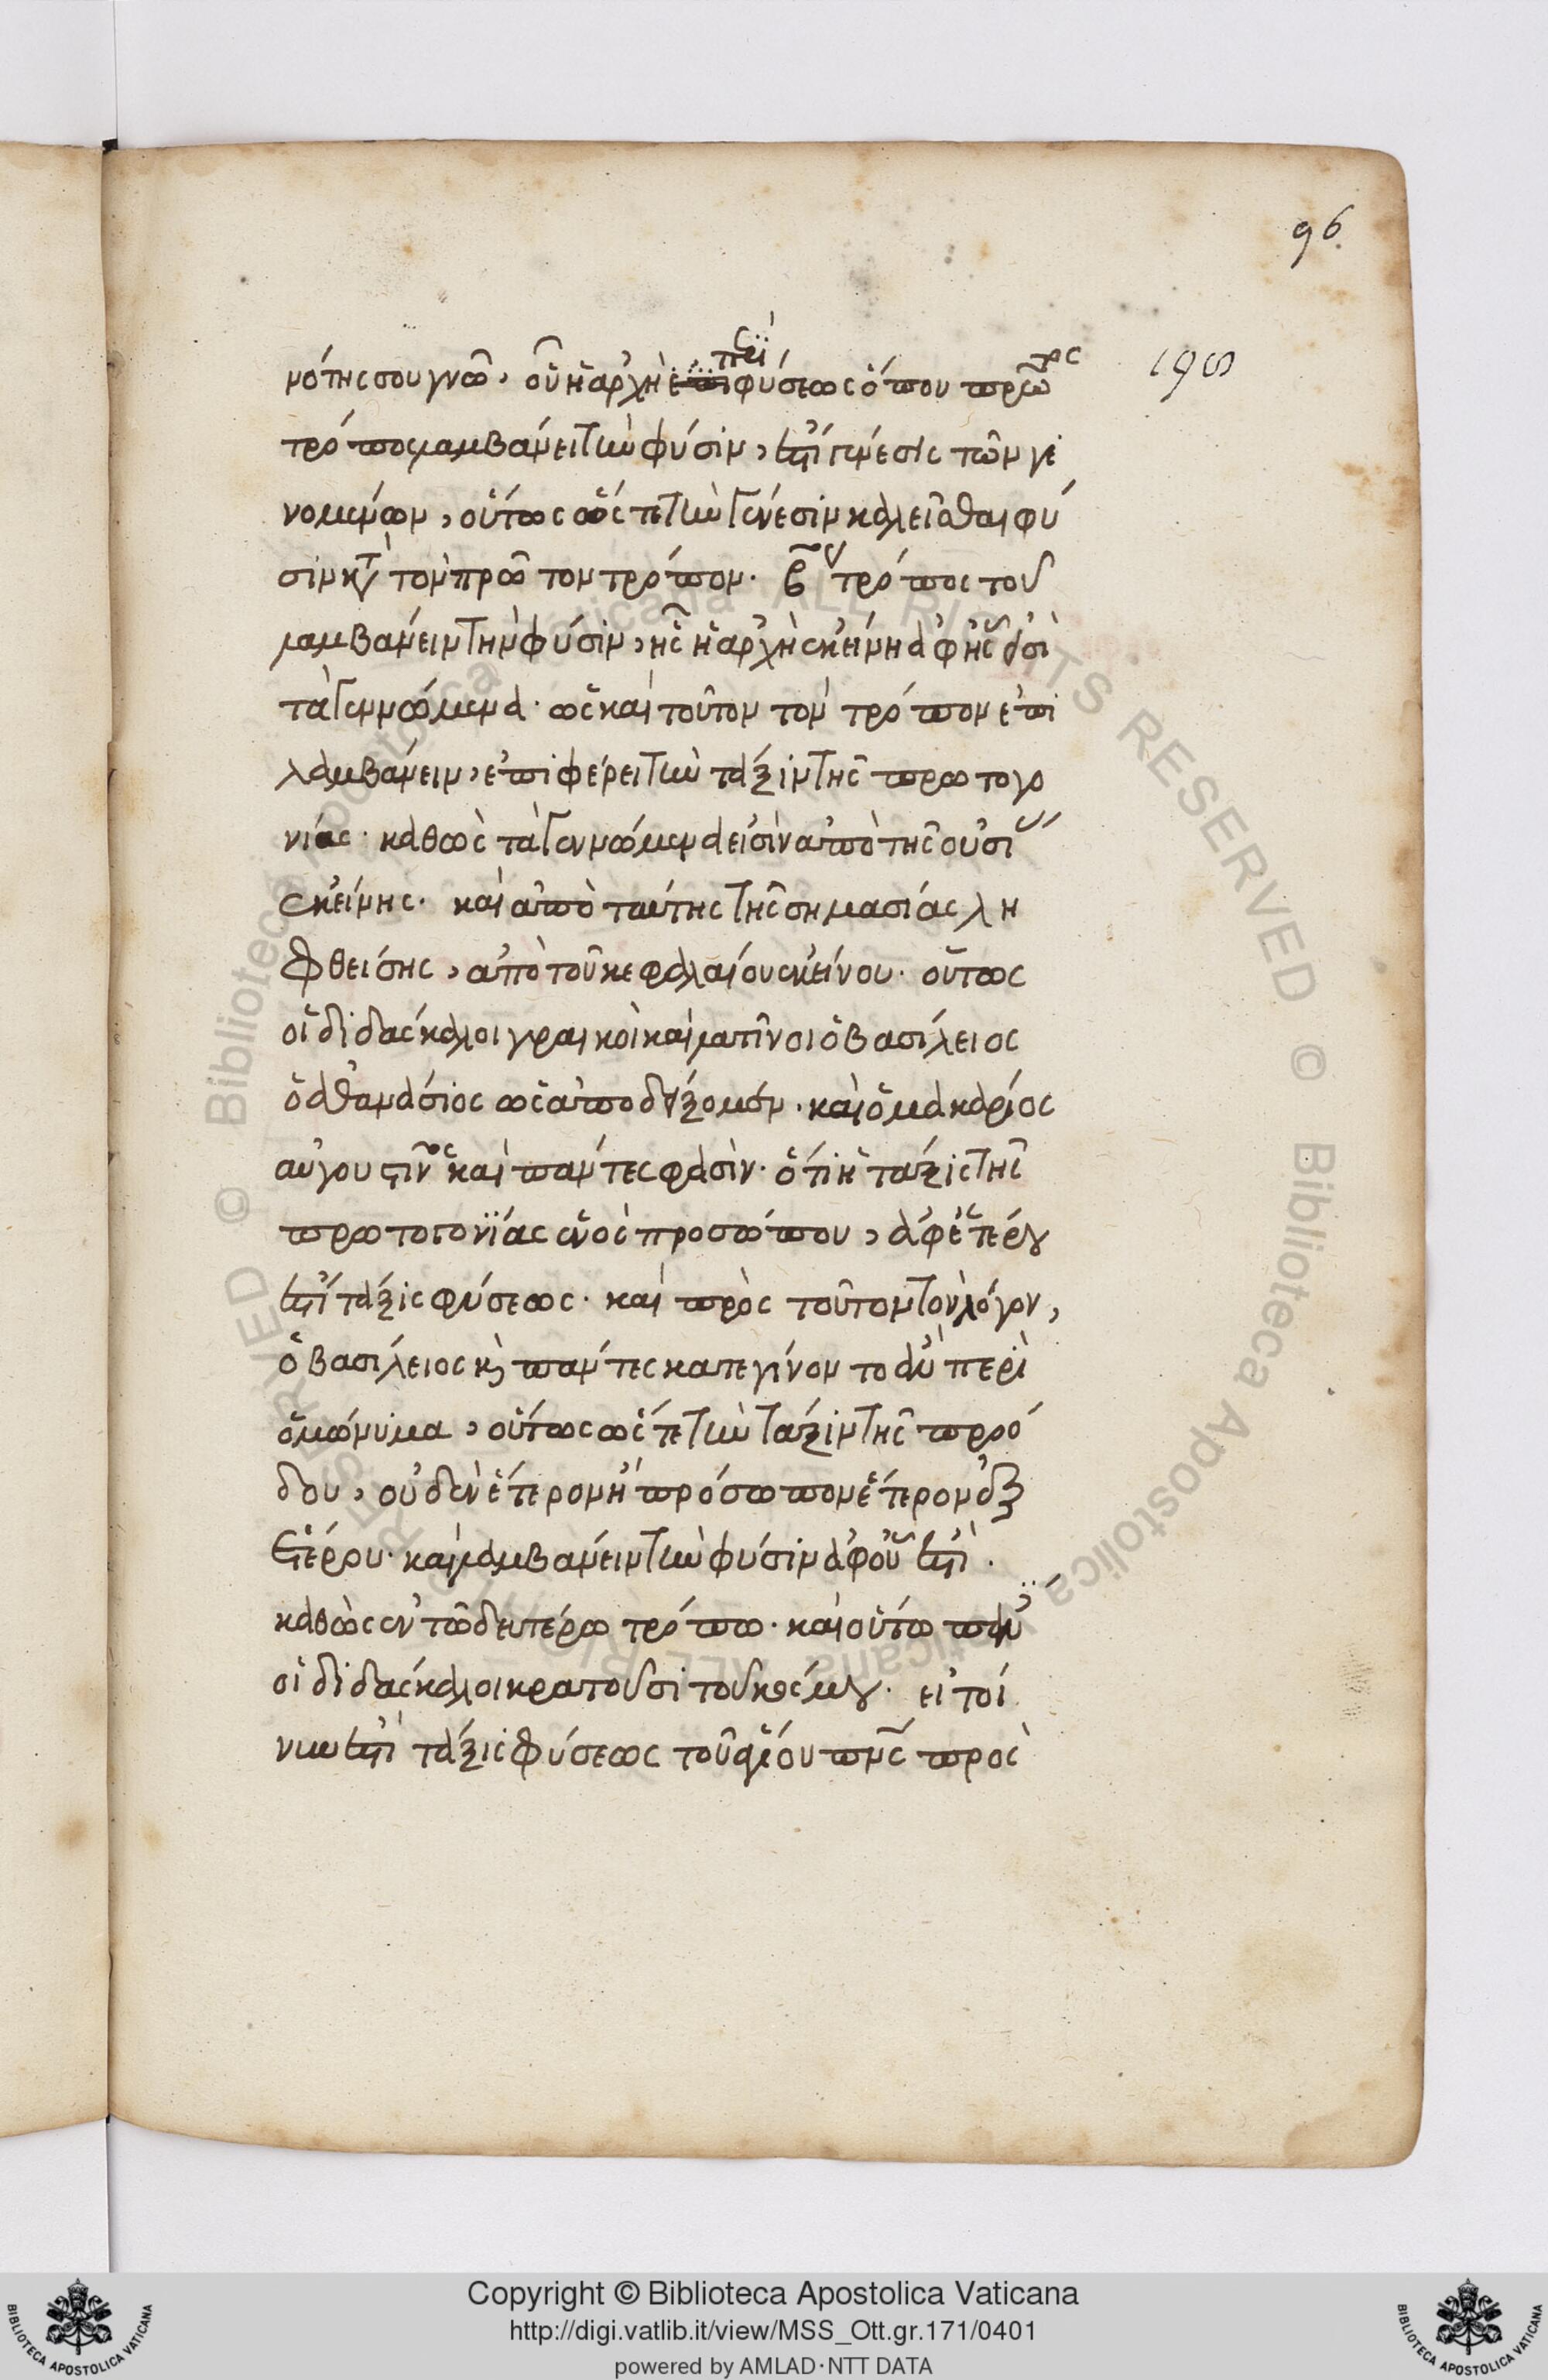 96
μότης σου γνῶ, οὗ ἡ ἀρχὴ ἐστὶ φύσεως ὁ που πρῶτος
196
τρόπος λαμβάνει τὴν φύσιν, ἐστὶ γένεσις τῶν γι
νομένων, οὕτως ὥστε τὴν γένεσιν καλεῖσθαι φύ
σιν κατὰ τὸν πρῶτον τρόπον. β τρόπος τοῦ
λαμβάνειν τὴν φύσιν, ἧς ἡ ἀρχὴ ἐκείνη ἀφ ἧς εἰσὶ
τὰ γεννώμενα. ὡς καὶ τοῦτον τὸν τρόπον ἐπι
λαμβάνειν, ἐπιφέρει τὴν τάξιν τῆς πρωτογο
νίας. καθὼς τὰ γεννώμενα εἰσὶν ἀπὸ τῆς οὐσίας
ἐκείνης. καὶ ἀπὸ ταύτης τῆς σημασίας λη
φθείσης, ἀπὸ τοῦ κεφαλαίου ἐκείνου. οὕτως
οἱ διδασκάλοι γραικοὶ καὶ λατῖνοι ὁ βασίλειος
ὁ ἀθανάσιος ὡς ἀποδείξομεν. καὶ ὁ μακάριος
αὐγουστῖνος καὶ πάντες φασὶν. ὅτι ἡ τάξις τῆς
πρωτογονίας ἑνὸς προσώπου, ἀφ ἑτέρου
ἐστὶ τάξις φύσεως. καὶ πρὸς τοῦτον τὸν λόγον,
ὁ βασίλειος καὶ πάντες κατεγίνοντο ἀεὶ περὶ
ὁμώνυμα, οὕτως ὥστε τὴν τάξιν τῆς προό
δου, οὐδὲν ἕτερον ἢ πρόσωπον ἕτερον ἐξ
ἑτέρου. καὶ λαμβάνειν τὴν φύσιν ἀφ οὗ ἐστὶ.
καθὼς ἐν τῶ δευτέρω τρόπω. καὶ οὕτω
οἱ διδασκάλοι κρατοῦσι τοῦ κόσμου. εἰ τοί
νυν ἐστὶ τάξις φύσεως τοῦ θείου πνς πρὸς
Copyright © Biblioteca Apostolica Vaticana
http://digi.vatlib.it/view/MSS_Ott.gr.171/0401
powered by AMLAD·NTT DATA